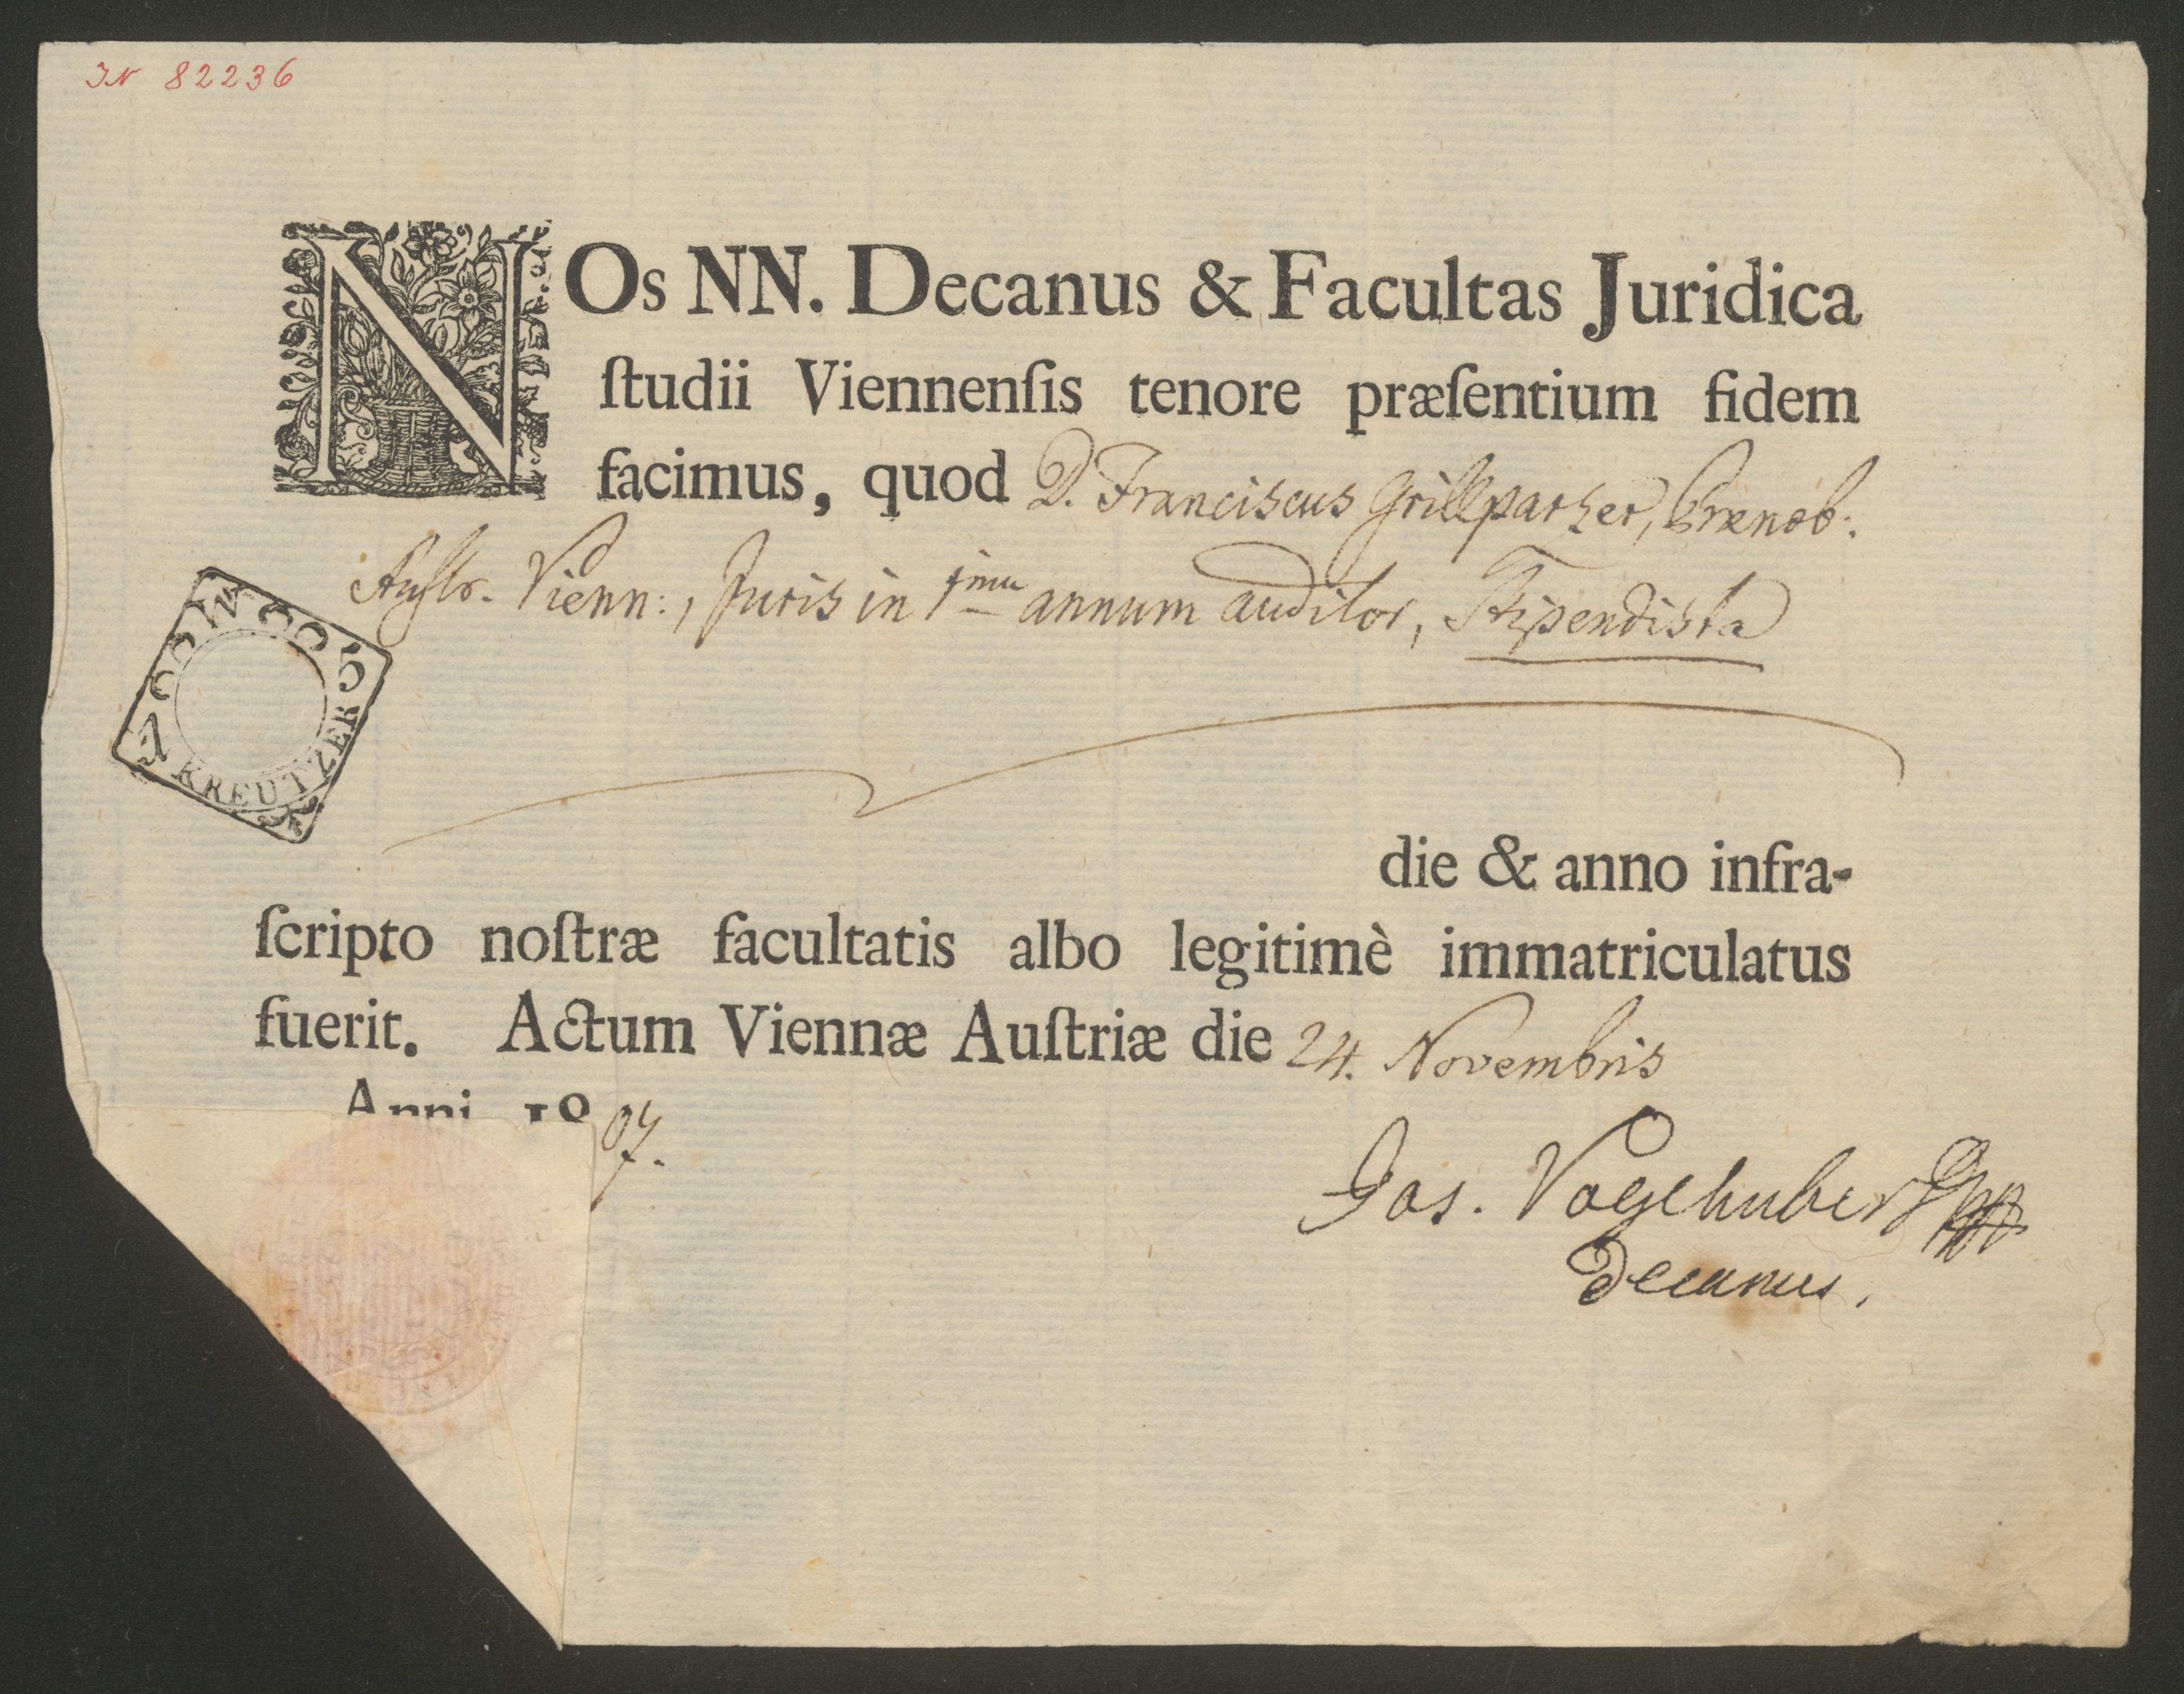 IN 82236
NOs NN. Decanus & Facultas Juridica
ſtudii Viennenſis tenore præſentium fidem
facimus, quod D. Franciscus Grillparzer, Prænob:
Auſtr. Vienn:, Juris in 1mu annum auditor, Stipendista
KREUTZER
die & anno infra-
ſcripto noſtræ facultatis albo legitimè immatriculatus
fuerit. Actum Viennæ Auſtriæ die 24. Novembris
Anni 1807.
Jos. Vogelhuber
Decanus.